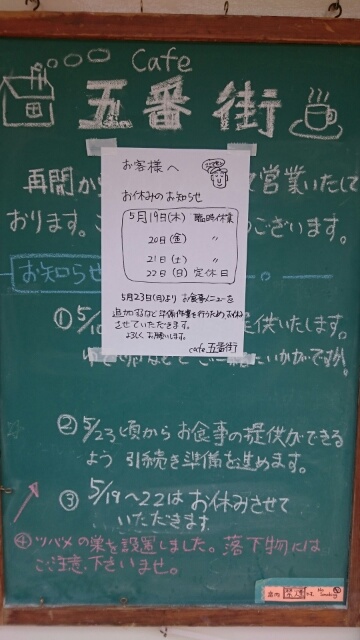 Cafe
五番街
再開か
て営業いたして
おります。
ございます。
お客様へ
お休みのお知らせ
5月19日(木) 臨時休業
20日(金) 〃
21日(土) 〃
22日(日) 定休日
5月23日(月)より お食事メニューを
追加するなど準備作業を行うため、お休み
させていただきます。
よろしくお願いします。
cafe 五番街
お知らせ
① 5/1
提供いたします。
いかがですか。
② 5/23頃からお食事の提供ができる
よう 引続き準備を進めます。
③ 5/19〜22はお休みさせて
いただきます。
④ツバメの巣を設置しました。落下物には
ご注意下さいませ。
店内 禁煙